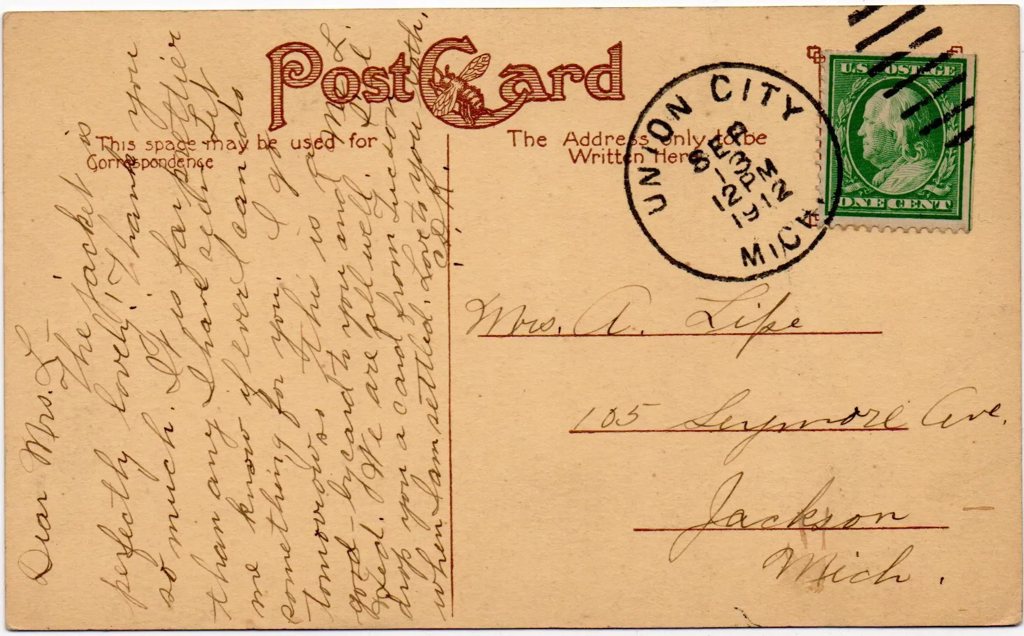 Post Card
This space may be used for
Correspondence
The Address only to be
Written Here
UNION CITY
SEP
12-3 PM
1912
MICH.
U.S. POSTAGE
ONE CENT
Dear Mrs. L-
The jacket is
perfectly lovely. I thank you
so much. It is far prettier
than any I have seen. Let
me know if ever I can do
something for you. I go
tomorrow. This is a
good-by card to you and Mr. L.
Fred. We are all well. I'll
drop you a card from
when I am settled. Love to you both.
Mrs. A. Lipe
105 Seymore Ave.
Jackson
Mich.